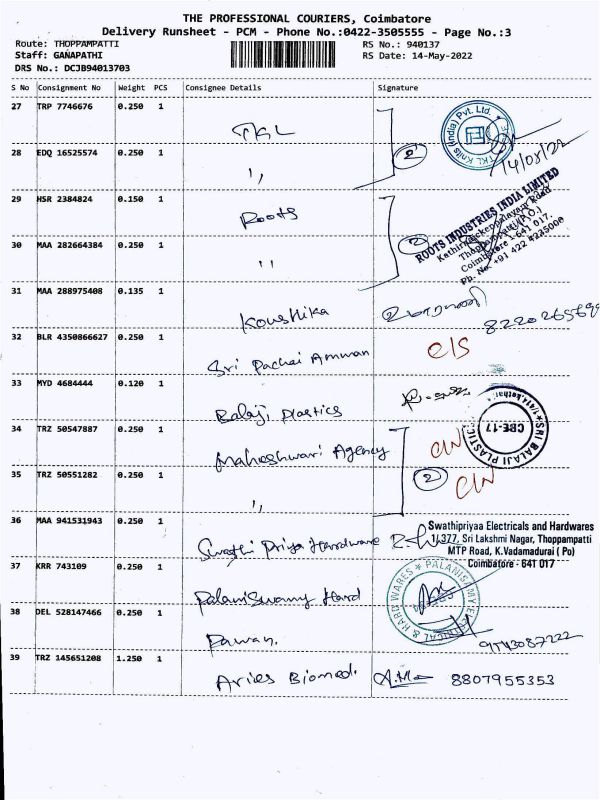 THE PROFESSIONAL COURIERS, Coimbatore
Delivery Runsheet - PCM - Phone No.:0422-3505555 - Page No.:3
Route: THOPPAMPATTI RS No.: 940137
Staff: GANAPATHI RS Date: 14-May-2022
DRS No.: DCJB94013703
S No Consignment No Weight PCS Consignee Details Signature
27 TRP 7746676 0.250 1 TKL
TKL Knits (India) Pvt. Ltd.
14/05/22
28 EDQ 16525574 0.250 1 ,, 2
29 HSR 2384824 0.150 1 Roots
ROOTS INDUSTRIES INDIA LIMITED
Thoppampatti (P.O.)
Coimbatore - 641 017.
Ph. No: +91 422 4235000
30 MAA 282664384 0.250 1 ,, 2
31 MAA 288975408 0.135 1 Koushika
32 BLR 4350866627 0.250 1 Sri Pachai Amman
33 MYD 4684444 0.120 1 Balaji Plastics
SRI BALAJI PLASTIC
CBE-17
34 TRZ 50547887 0.250 1 Maheshwari Agency
35 TRZ 50551282 0.250 1 ,, 2
36 MAA 941531943 0.250 1 Swathi Priya Hardware
Swathipriyaa Electricals and Hardwares
1/377, Sri Lakshmi Nagar, Thoppampatti
MTP Road, K.Vadamadurai ( Po)
Coimbatore - 641 017
37 KRR 743109 0.250 1 Palaniswamy Hard
38 DEL 528147466 0.250 1 Pawan.
39 TRZ 145651208 1.250 1 Aries Biomed. 8807955353